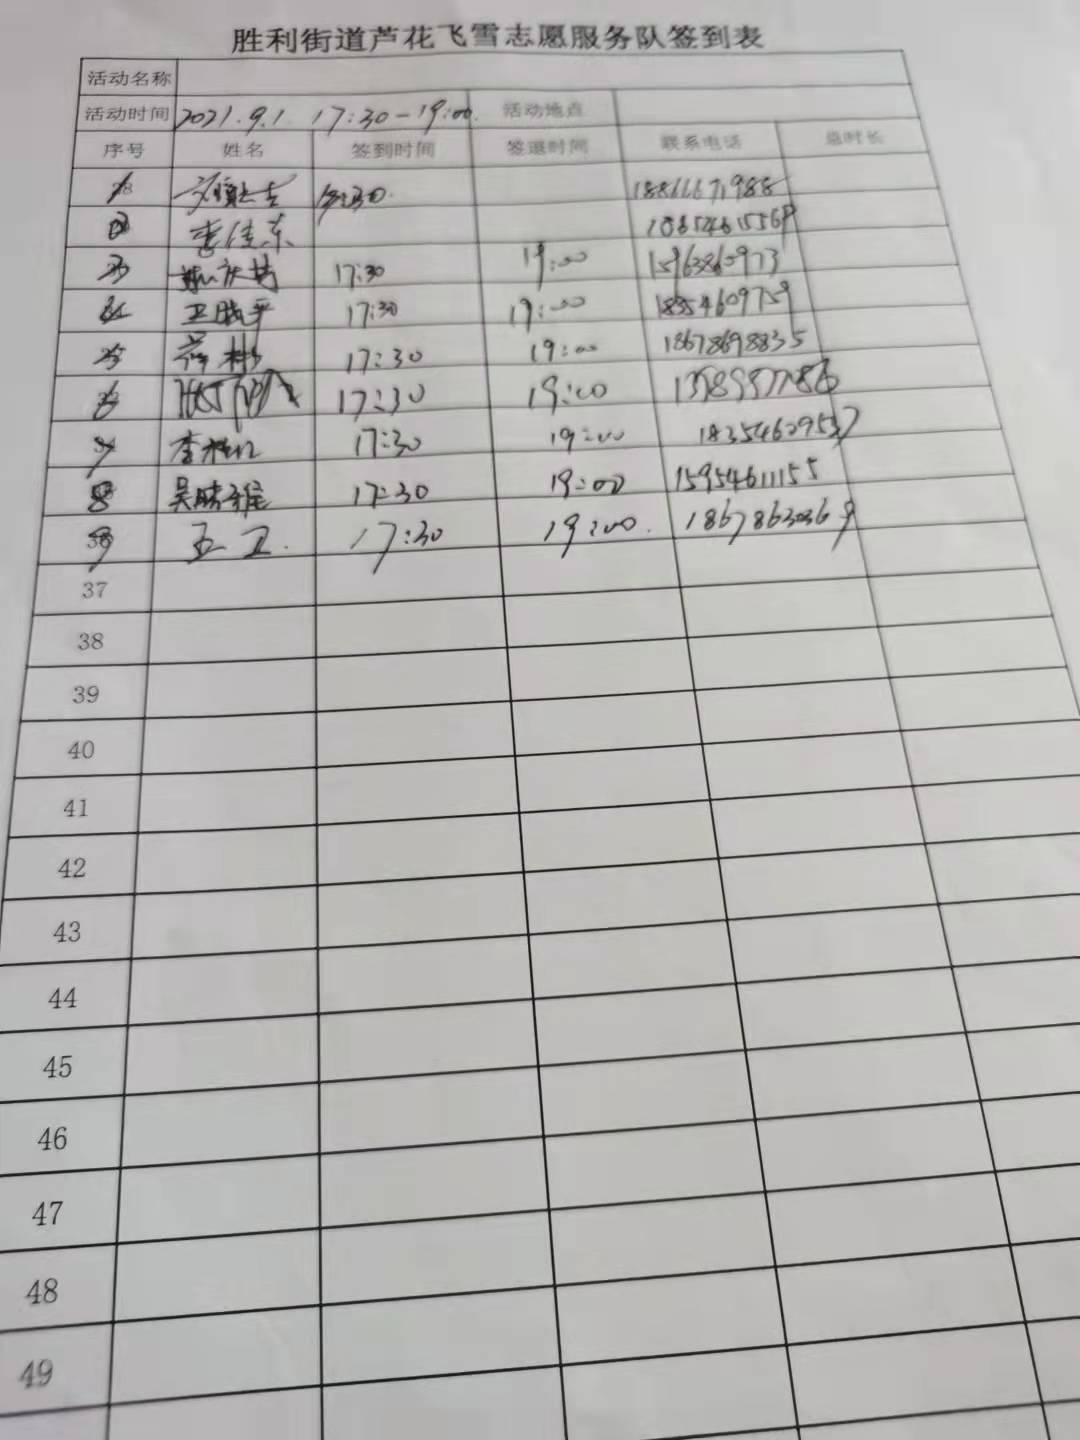 胜利街道芦花飞雪志愿服务队签到表
活动名称
活动时间 2021.9.1. 17:30-19:00. 活动地点
序号 姓名 签到时间 签退时间 联系电话 总时长
18866671988
2 李佳东
3 17:30 19:00 15963860973
4 卫晓平 17:30 19:00 18354609759
5 蒋彬 17:30 19:00 18678698835
6 17:30 19:00
7 17:30 19:00 18354609537
8 吴晓雅 17:30 19:00 15954611155
9 王卫. 17:30 19:00. 18678630369
37
38
39
40
41
42
43
44
45
46
47
48
49